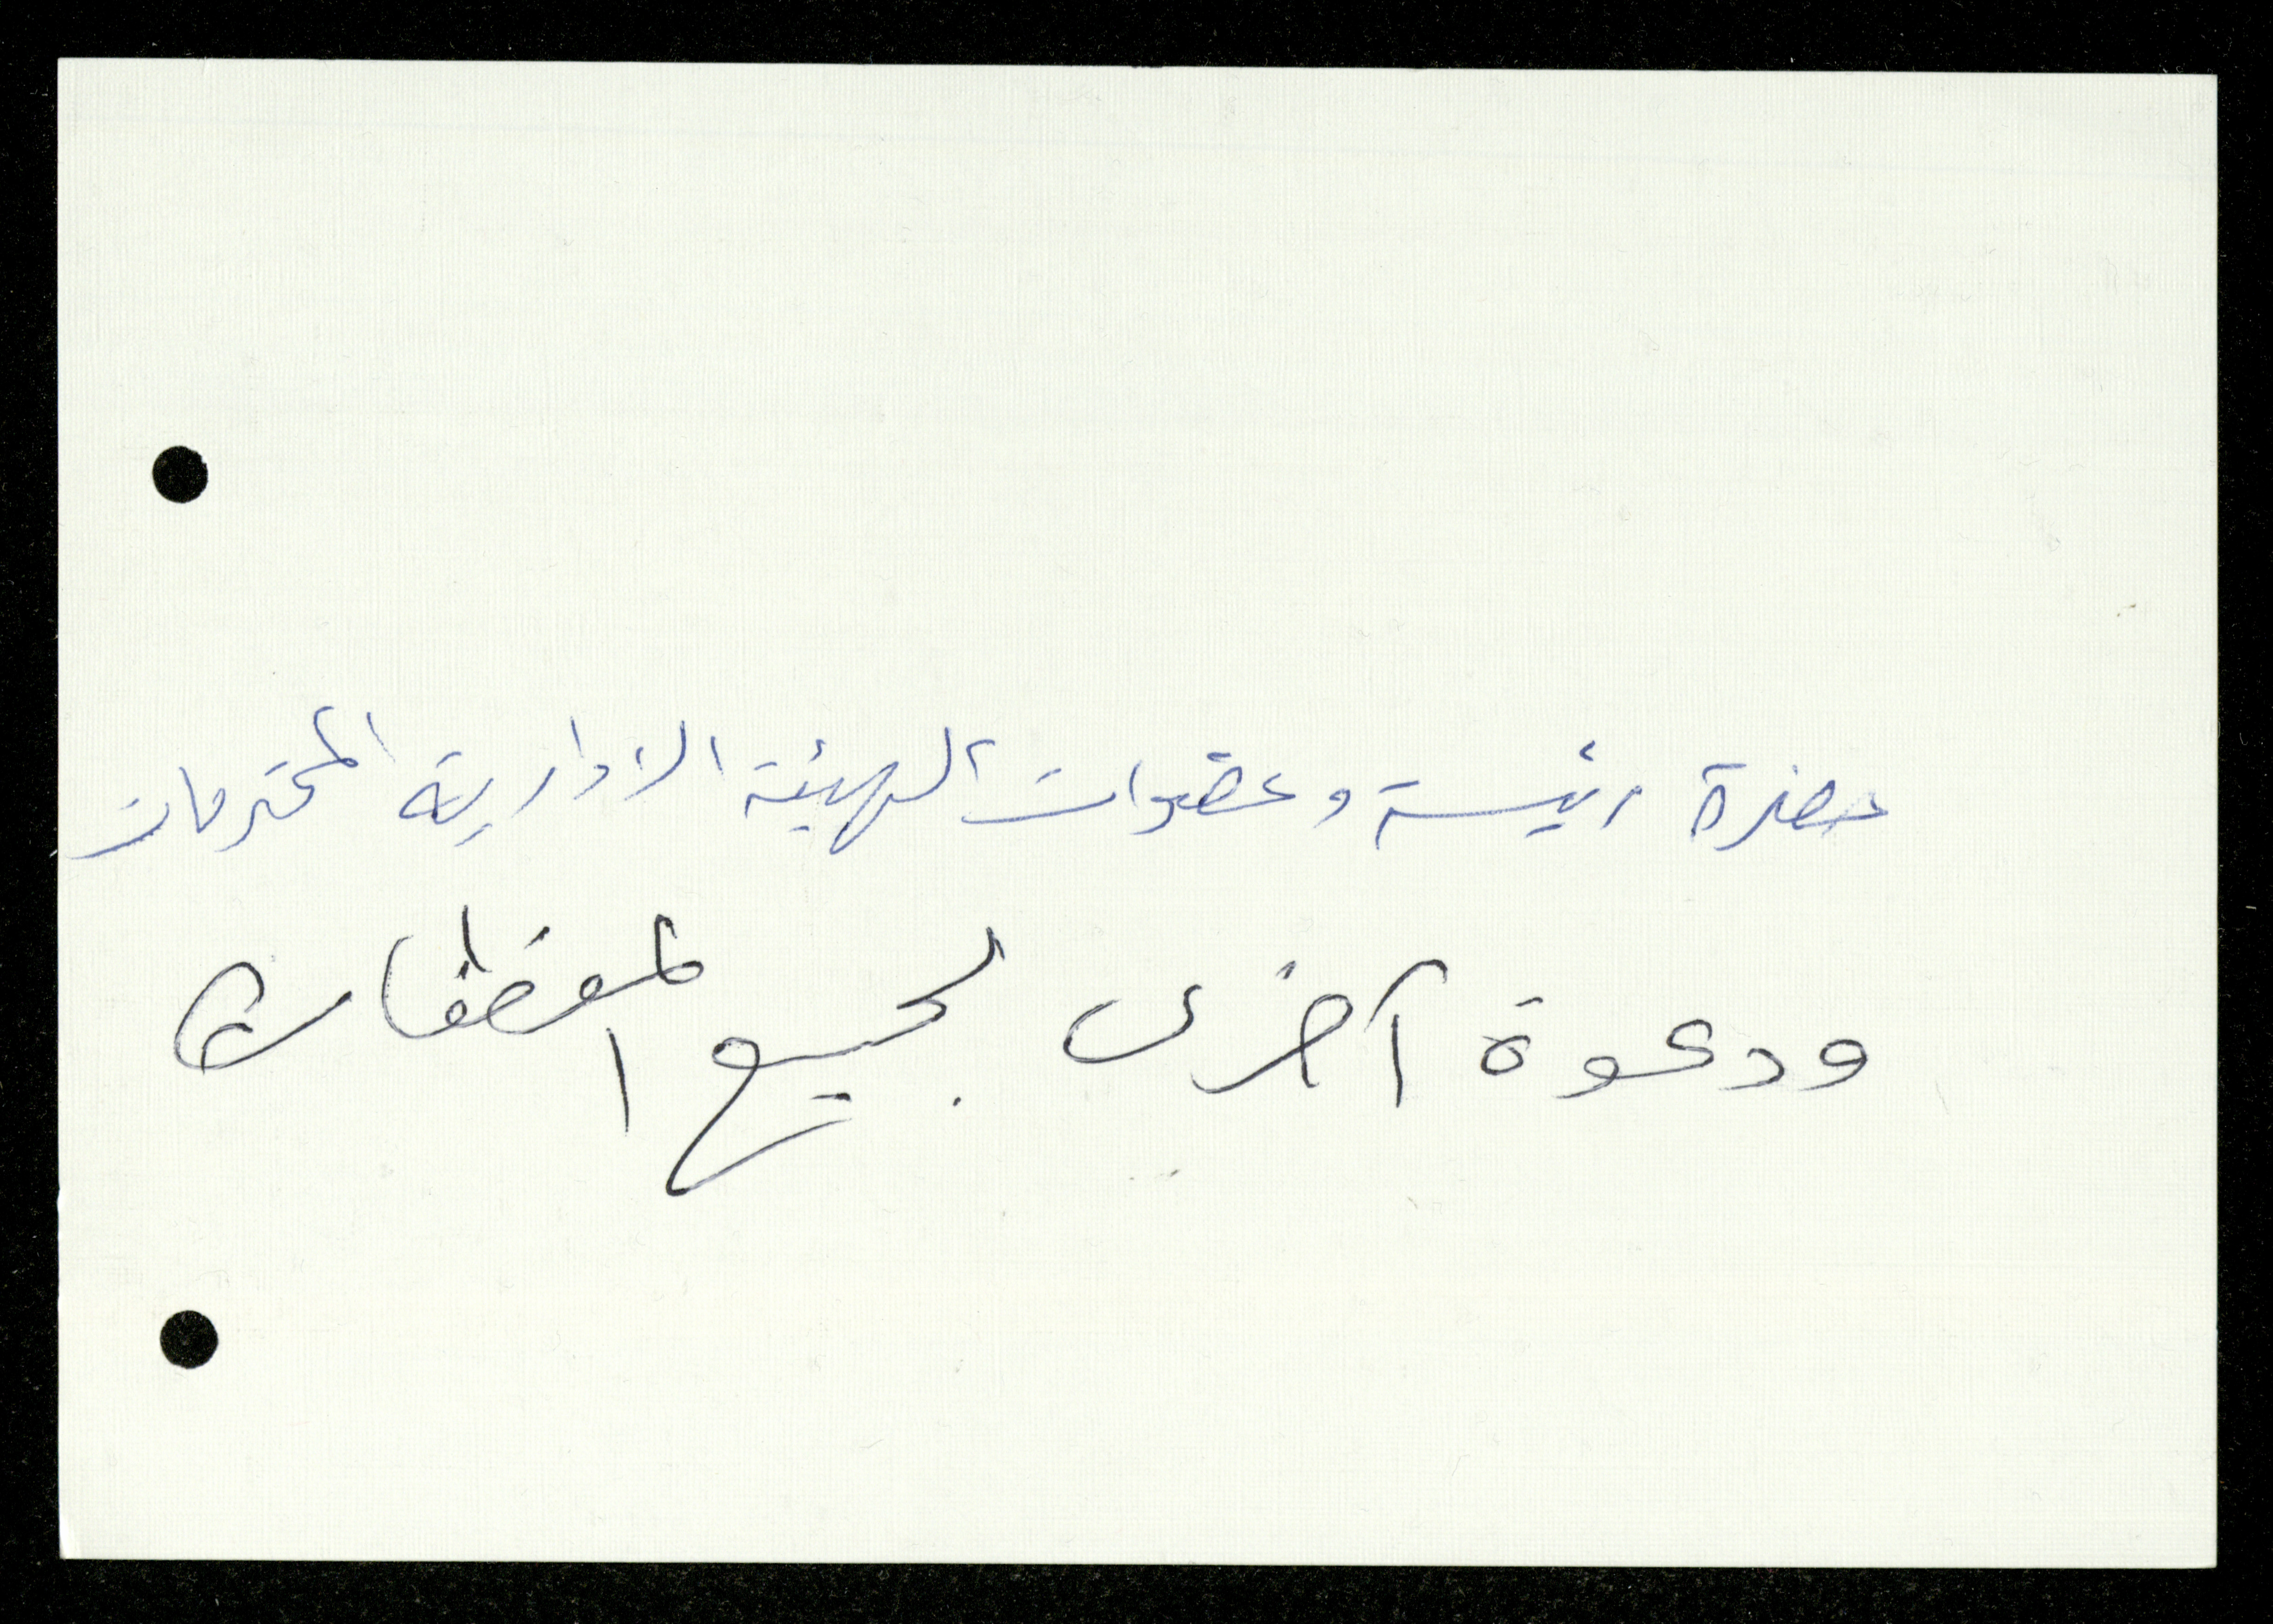 حضرة رئيسة وعضوات الهيئة الادارية المحترمات
ودعوة آخرى لجميع الموظفات